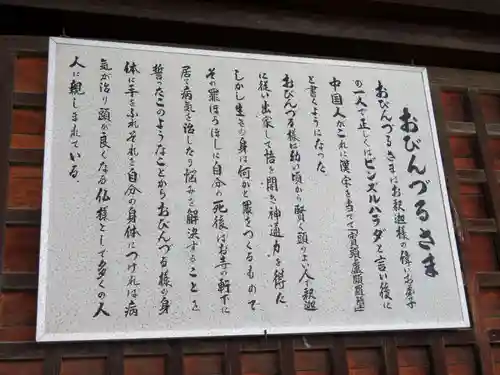 おびんづるさま
おびんづるさまはお釈迦様の偉いお弟子
の一人で正しくはビンズルハラダと言い後に
中国人がこれに漢字を当てて「賓頭盧頗羅墮」
と書くようになった。
おびんづる様は幼い頃から賢く頭のよい人で釈迦
に従い出家して悟を開き神通力を得た。
しかし生きの身は何かと罪をつくるもので
その罪ほろぼしに自分の死後はお寺の軒下に
居て病気を治したり悩みを解決することを
誓ったこのようなことからおびんづる様の身
体に手をふれそれを自分の身体につければ病
気が治り頭が良くなる仏様として多くの人
人に親しまれている。